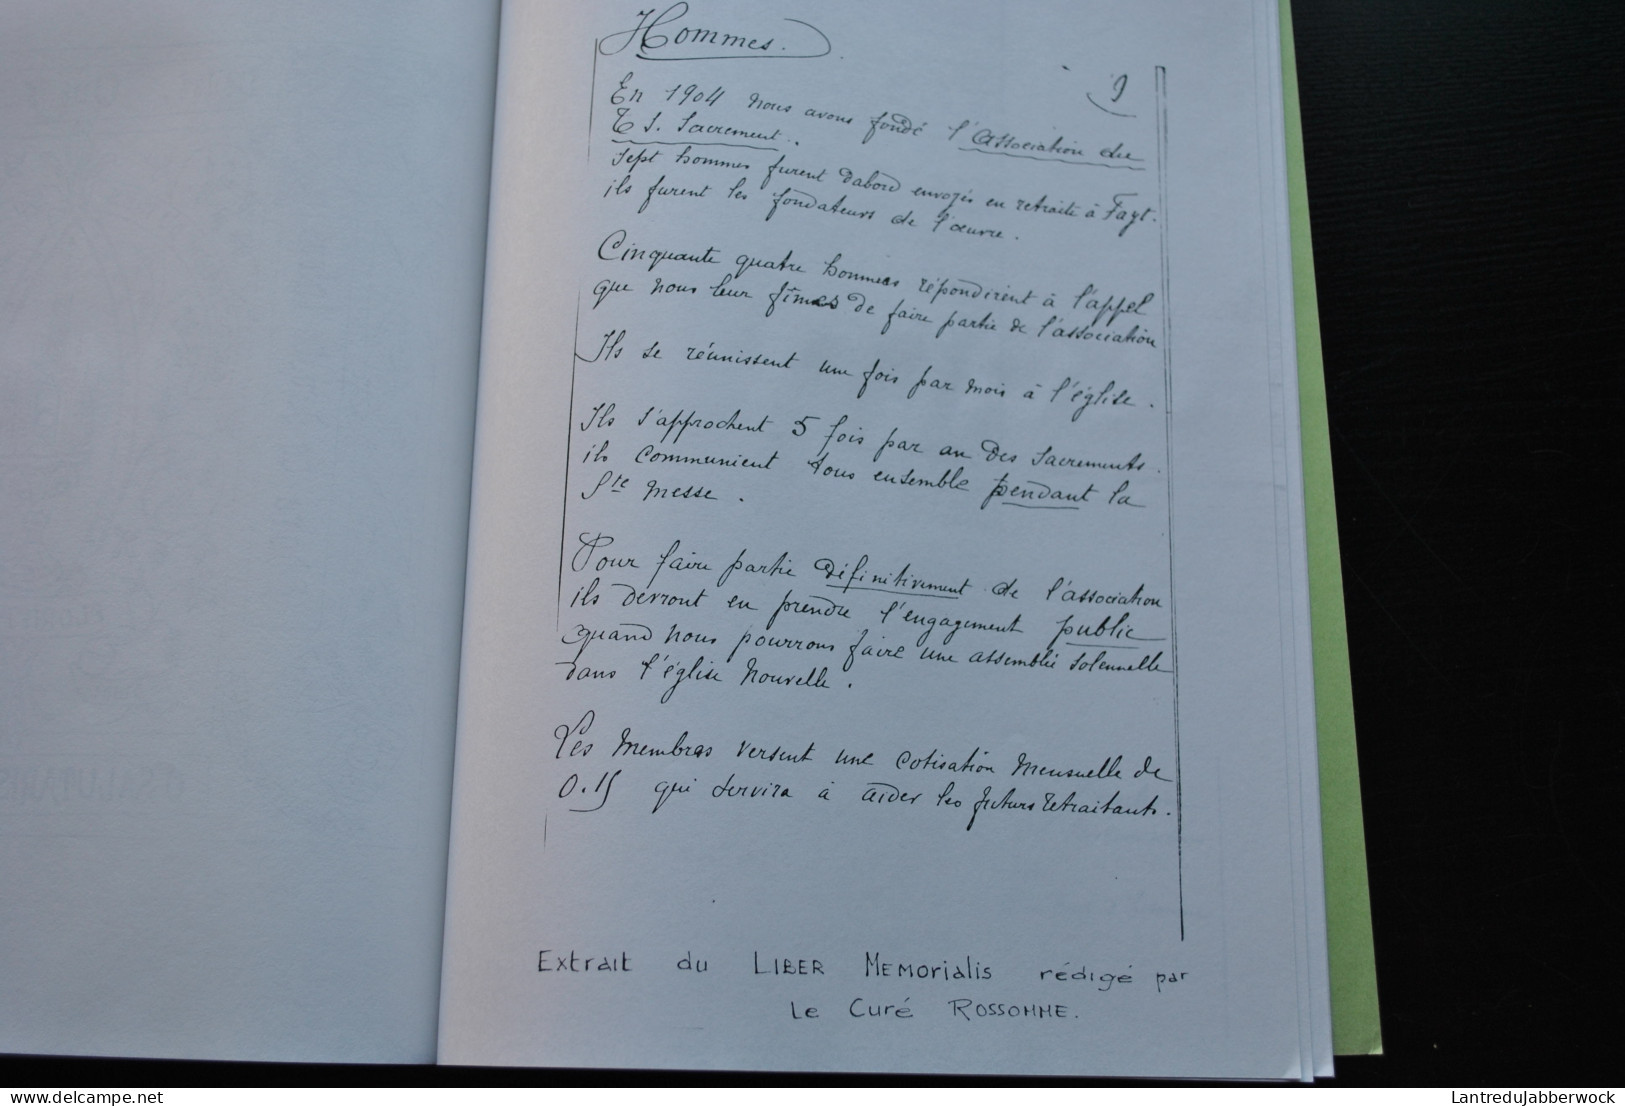 Hommes.
9
En 1904 nous avons fondé l'Association du
T S. Sacrement.
Sept hommes furent d'abord envoyés en retraite à Fayt.
ils furent les fondateurs de l'œuvre.
Cinquante quatre hommes répondirent à l'appel
que nous leur fîmes de faire partie de l'association
Ils se réunissent une fois par mois à l'église.
Ils s'approchent 5 fois par an des Sacrements.
ils communient tous ensemble pendant la
Ste Messe.
Pour faire partie définitivement de l'association
ils devront en prendre l'engagement public
quand nous pourrons faire une assemblée solennelle
dans l'église nouvelle.
Les membres versent une cotisation mensuelle de
0.15 qui servira à aider les futurs retraitants.
Extrait du LIBER MEMORIALIS rédigé par
Le Curé ROSSOMME.
delcampe.net
LantreduJabberwock